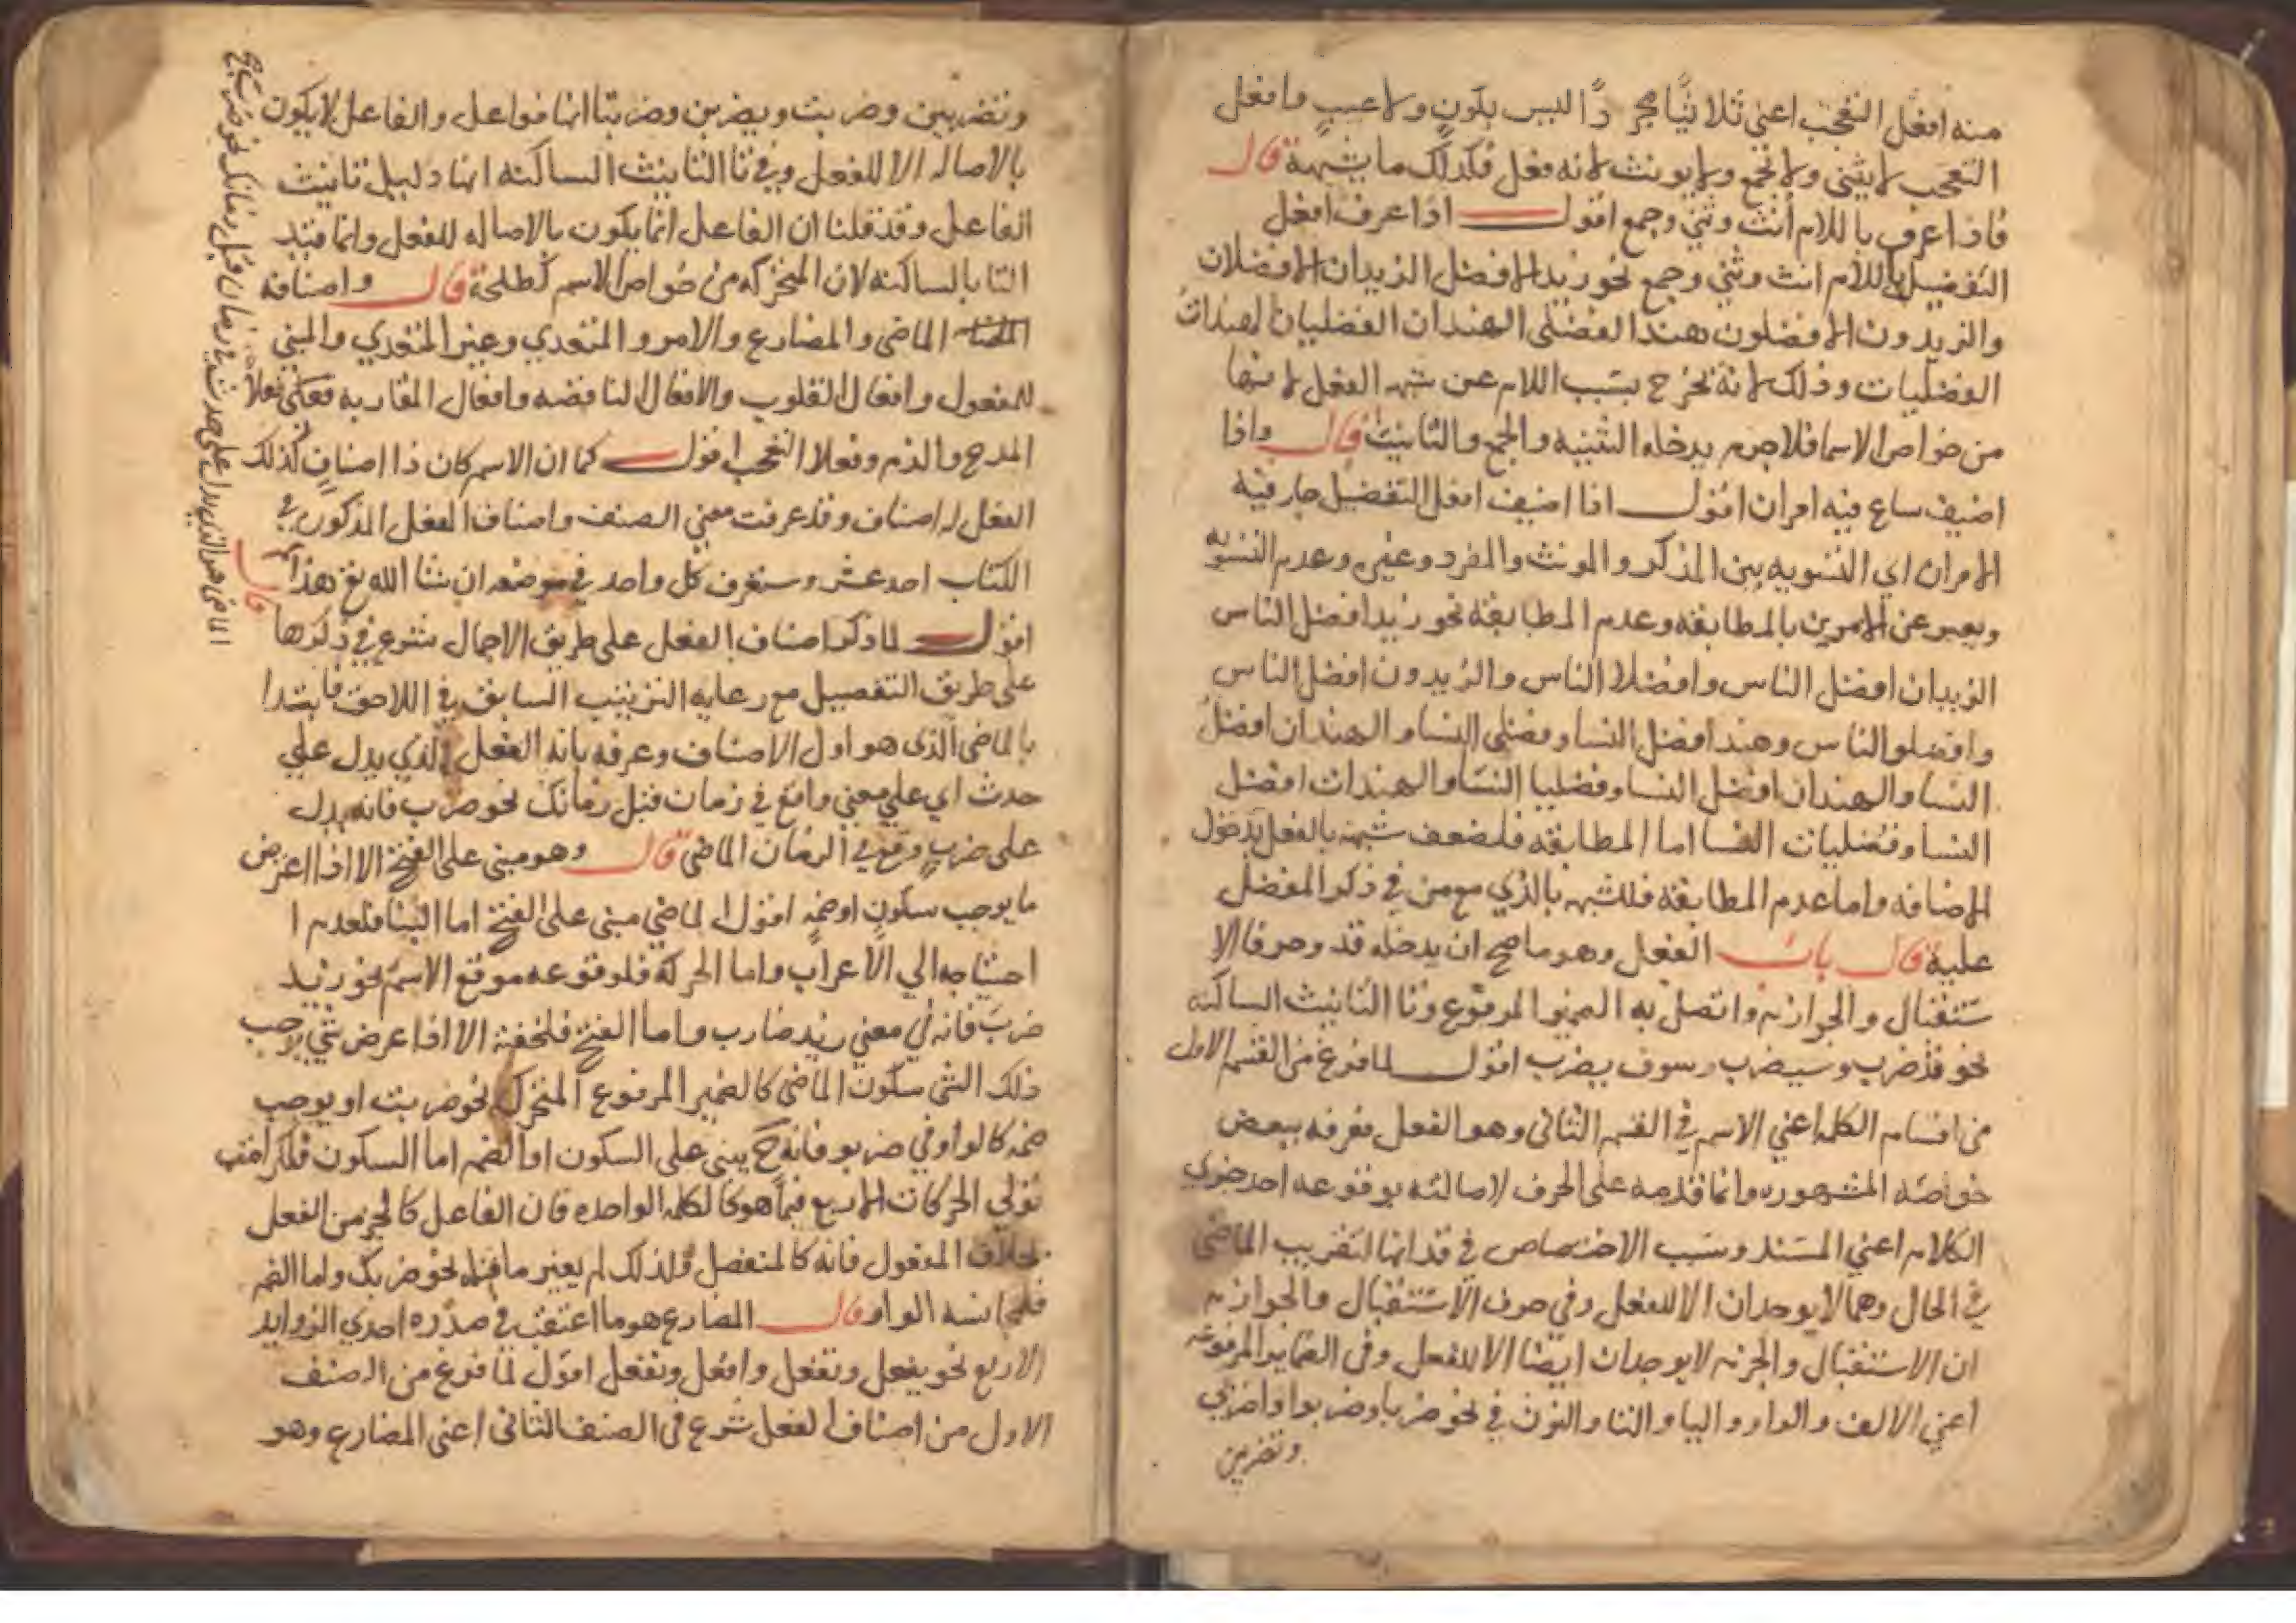 منه افعل التعجب اعني ثلاثيا مجردًا ليس بكونٍ ولا عيبٍ وافعل
التعجب لا يثني ولا يجمع ولا يونث لانه فعل فكذلك ما يشبهه قال
فاذا عرف باللام أنث وثني وجمع اقول اذا عرف افعل
التفضيل باللام انث وثني وجمع نحو زيد الافضل الزيدان الافضلان
والزيدون الافضلون هند الفضلى الهندان الفضليان الهندات
الفضليات وذلك لانه يخرج بسبب اللام عن شبه الفعل لانها
من خواص الاسما فلا جرم يدخله التثنيه والجمع والتانيث قال واذا
اضيف ساغ فيه امران اقول اذا اضيف افعل التفضيل جاز فيه
الامران اي التسويه بين المذكر والمونث والمفرد وغيره وعدم التسويه
ويعبر عن الامرين بالمطابقه وعدم المطابقه نحو زيد افضل الناس
الزيدان افضل الناس وافضلا الناس والزيدون افضل الناس
وافضلوا الناس وهند افضل النسا وفضلى النسا والهندان افضل
النسا والهندان افضل النسا وفضليا النسا والهندات افضل
النسا وفضليات النسا اما المطابقه فلضعف شبهه بالفعل بدخول
الاضافه واما عدم المطابقه فللشبهه بالذي مع من في ذكر المفضل
عليه قال باب الفعل وهو ما صح ان يدخله قد وحرفا الا
ستقبال والجوازم واتصل به الضمير المرفوع وتا التانيث الساكنه
نحو قد ضرب وسيضرب وسوف يضرب اقول لما فرغ من القسم الاول
من اقسام الكلمه اعني الاسم في القسم الثاني وهو الفعل فعرفه ببعض
خواصه المشهوره وانما قدمه على الحرف لاصالته بوقوعه احد جزوي
الكلام اعني المسند وسبب الاختصاص في قد انها لتقريب الماضي
في الحال وهما لا يوجدان الا للفعل وفي حرف الاستقبال والجوازم
ان الاستقبال والجزم لا يوجدان ايضا الا للفعل وفي الضماير المرفوعه
اعني الالف والواو واليا والتا والنون في نحو ضربا وضربوا واضربي
وتضربين
وتضربين وضربت ويضربن وضربتا انها فواعل والفاعل لا يكون
بالاصاله الا للفعل وفي تا التانيث الساكنه انها دليل تانيث
الفاعل وقد قلنا ان الفاعل انما يكون بالاصاله للفعل وانما قيد
التا بالساكنه لان المتحركه من خواص الاسم كطلحة قال واصنافه
الماضي والمضارع والامر والمتعدي وغير المتعدي والمبني
للمفعول وافعال القلوب والافعال الناقصه وافعال المقاربه وفعلا
المدح والذم وفعلا التعجب اقول كما ان الاسم كان ذا اصنافٍ كذلك
الفعل له اصناف وقد عرفت معني الصنف واصناف الفعل المذكور في
الكتاب احد عشر وستعرف كل واحد في موضعه ان شا الله تع هذا
قال
اقول لما ذكر اصناف الفعل على طريق الاجمال شرع في ذكرها
على طريق التفصيل مع رعايه الترتيب السابق في اللاحق فابتدا
بالماضي الذي هو اول الاصناف وعرفه بانه الفعل الذي يدل علي
حدث اي علي معني واقع في زمان قبل زمانك نحو ضرب فانه يدل
على ضربٍ وقع في الزمان الماضي قال وهو مبني على الفتح الا اذا اعترض
ما يوجب سكونٍ او ضمه اقول الماضي مبني على الفتح اما البنا فلعدم ا
احتياجه الي الاعراب واما الحركة فلوقوعه موقع الاسم نحو زيد
ضرب فانه في معني زيد ضارب واما الفتح فلخفته الا اذا عرض شي يوجب
ذلك الشي سكون الماضي كالضمير المرفوع المتحرك نحو ضربت او يوجب
ضمه كالواو في ضربوا فانه ح يبني على السكون او الضم اما السكون فلكراهه
توالي الحركات الاربع فيما هو كالكلمه الواحده فان الفاعل كالجز من الفعل
بخلاف المفعول فانه كالمنفصل ولذلك لم يغير ما قبله نحو ضربك واما الضم
فلمجانسه الواو قال المضارع هو ما اعتقب في صدره احدي الزوايد
الاربع نحو يفعل وتفعل وافعل ونفعل اقول لما فرغ من الصنف
الاول من اصناف الفعل شرع في الصنف الثاني اعني المضارع وهو
الماضي هو الذي يدل على حدث في زمان قبل زمانك نحو ضرب